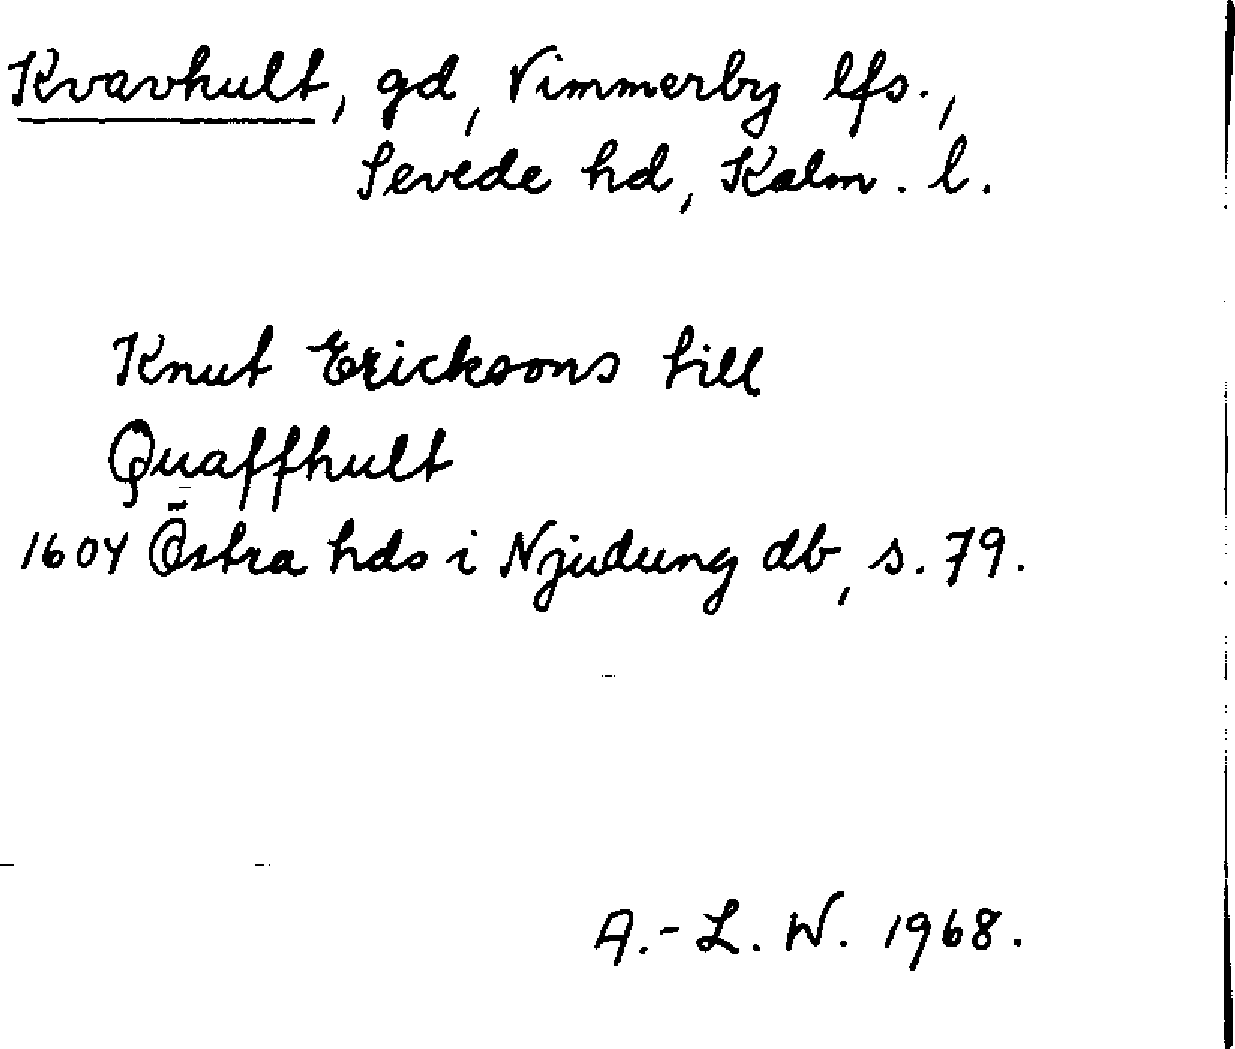 Kvavhult, gd, Vimmerby lfs.,
Sevede hd, Kalm. l.
Knut Ericksons till
Quaffhult
1604 Östra hds i Njudung db, s. 79.
A.-L. W. 1968.